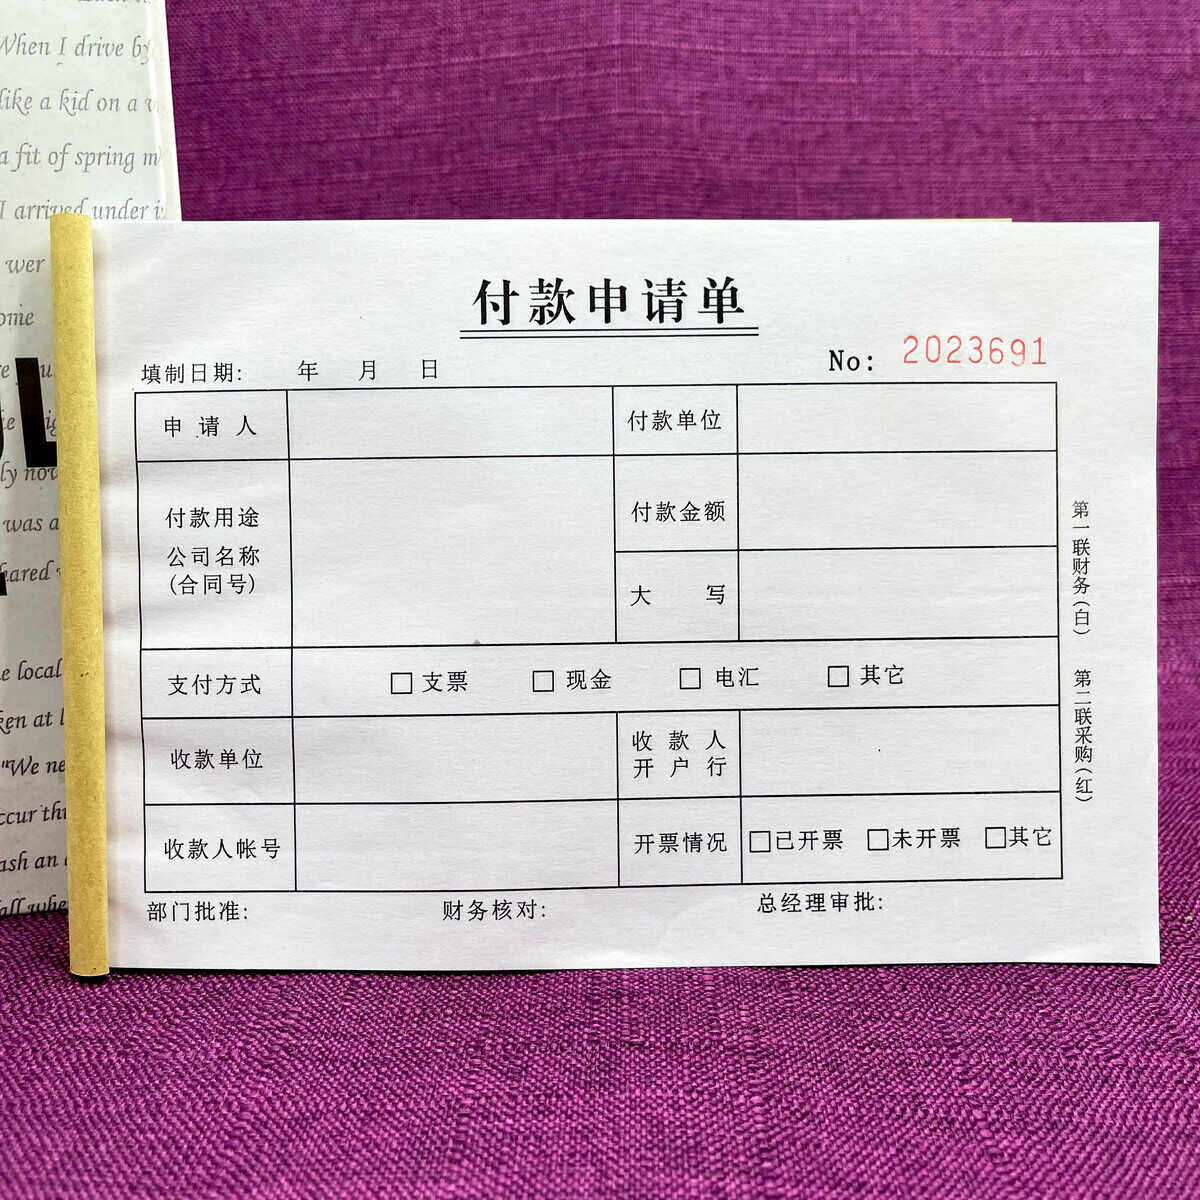 When I drive by
like a kid on a
a fit of spring
I arrived under
wer
付款申请单
填制日期: 年 月 日
No: 2023691
申请人
付款单位
付款用途
公司名称
(合同号)
付款金额
大写
支付方式
□支票 □现金 □电汇 □其它
收款单位
收款人
开户行
收款人帐号
开票情况
□已开票 □未开票 □其它
部门批准: 财务核对: 总经理审批:
第一联财务(白)
第二联采购(红)
was a
e local
ken at
"We ne
ash an